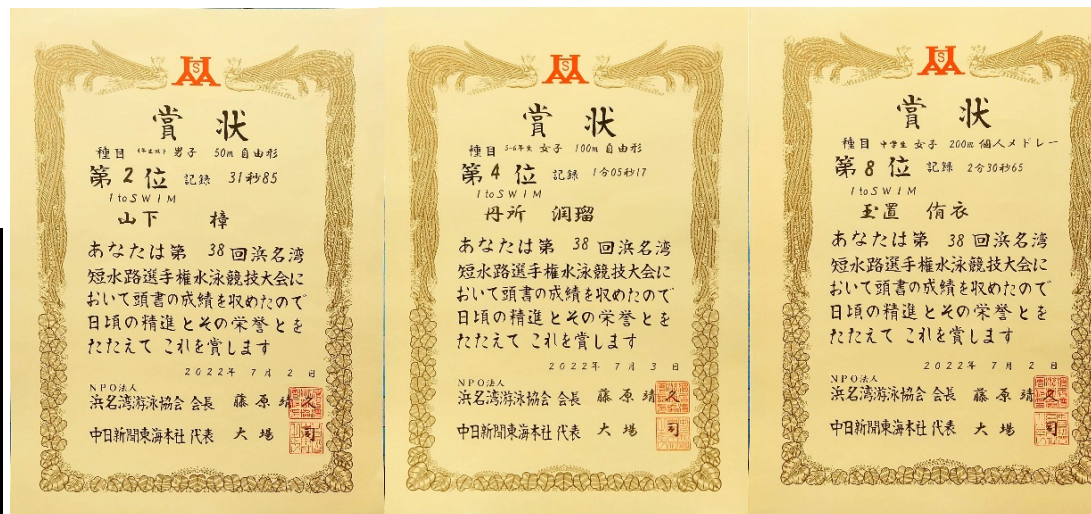 賞状
種目 4年生以下 男子 50m 自由形
第2位 記録 31秒85
I to SWIM
山下 樟
あなたは第 38 回浜名湾
短水路選手権水泳競技大会に
おいて頭書の成績を収めたので
日頃の精進とその栄誉とを
たたえて これを賞します
2022年 7月 2日
NPO法人
浜名湾游泳協会 会長 藤原靖久
中日新聞東海本社 代表 大場司
賞状
種目 5-6年生 女子 100m 自由形
第4位 記録 1分05秒17
I to SWIM
丹所 润瑠
あなたは第 38 回浜名湾
短水路選手権水泳競技大会に
おいて頭書の成績を収めたので
日頃の精進とその栄誉とを
たたえて これを賞します
2022年 7月 3日
NPO法人
浜名湾游泳協会 会長 藤原靖久
中日新聞東海本社 代表 大場司
賞状
種目 中学生 女子 200m 個人メドレー
第8位 記録 2分30秒65
I to SWIM
玉置 侑衣
あなたは第 38 回浜名湾
短水路選手権水泳競技大会に
おいて頭書の成績を収めたので
日頃の精進とその栄誉とを
たたえて これを賞します
2022年 7月 2日
NPO法人
浜名湾游泳協会 会長 藤原靖久
中日新聞東海本社 代表 大場司